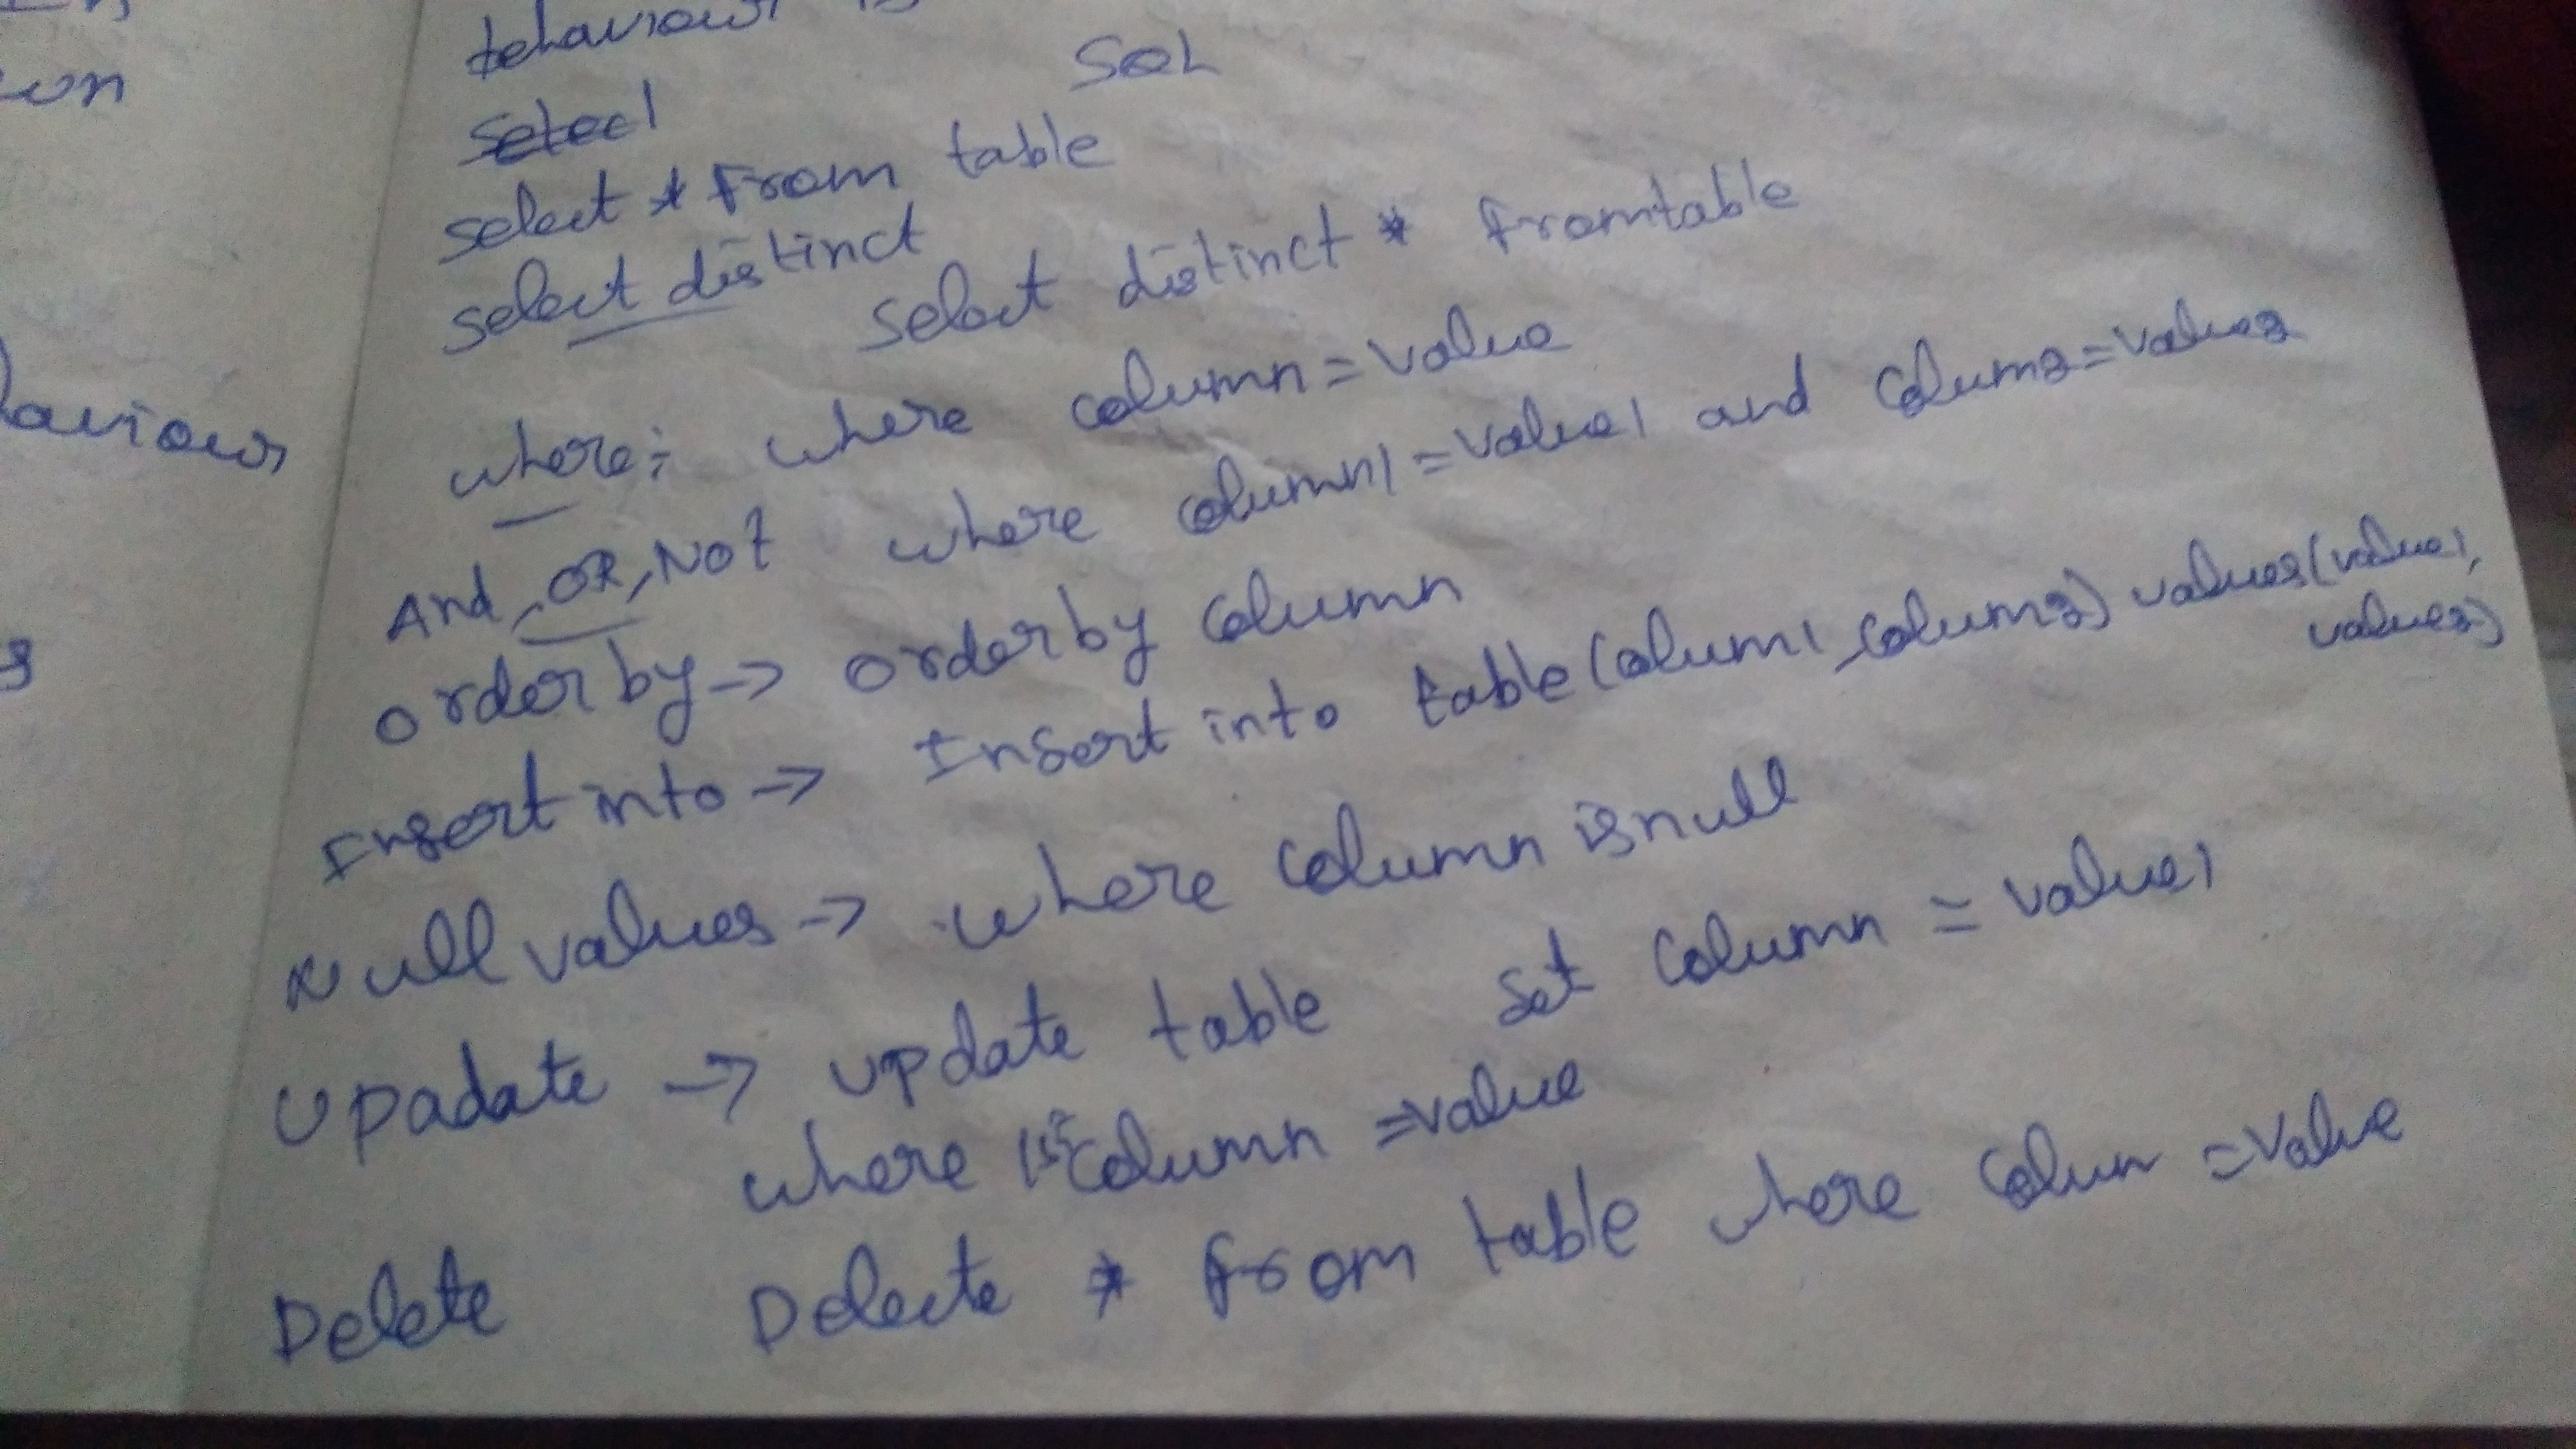 behaviour
SQL
select * from table
select distinct
select distinct * from table
where: where column = value
And, OR, Not where column1 = value1 and colum2 = value2
order by -> order by column
Insert into -> Insert into table (colum1, colum2) values (value1,
value2)
Null values -> where column is null
Upadate -> update table set column = value1
where column = value
Delete Delecte * from table where colum = value
on
haviour